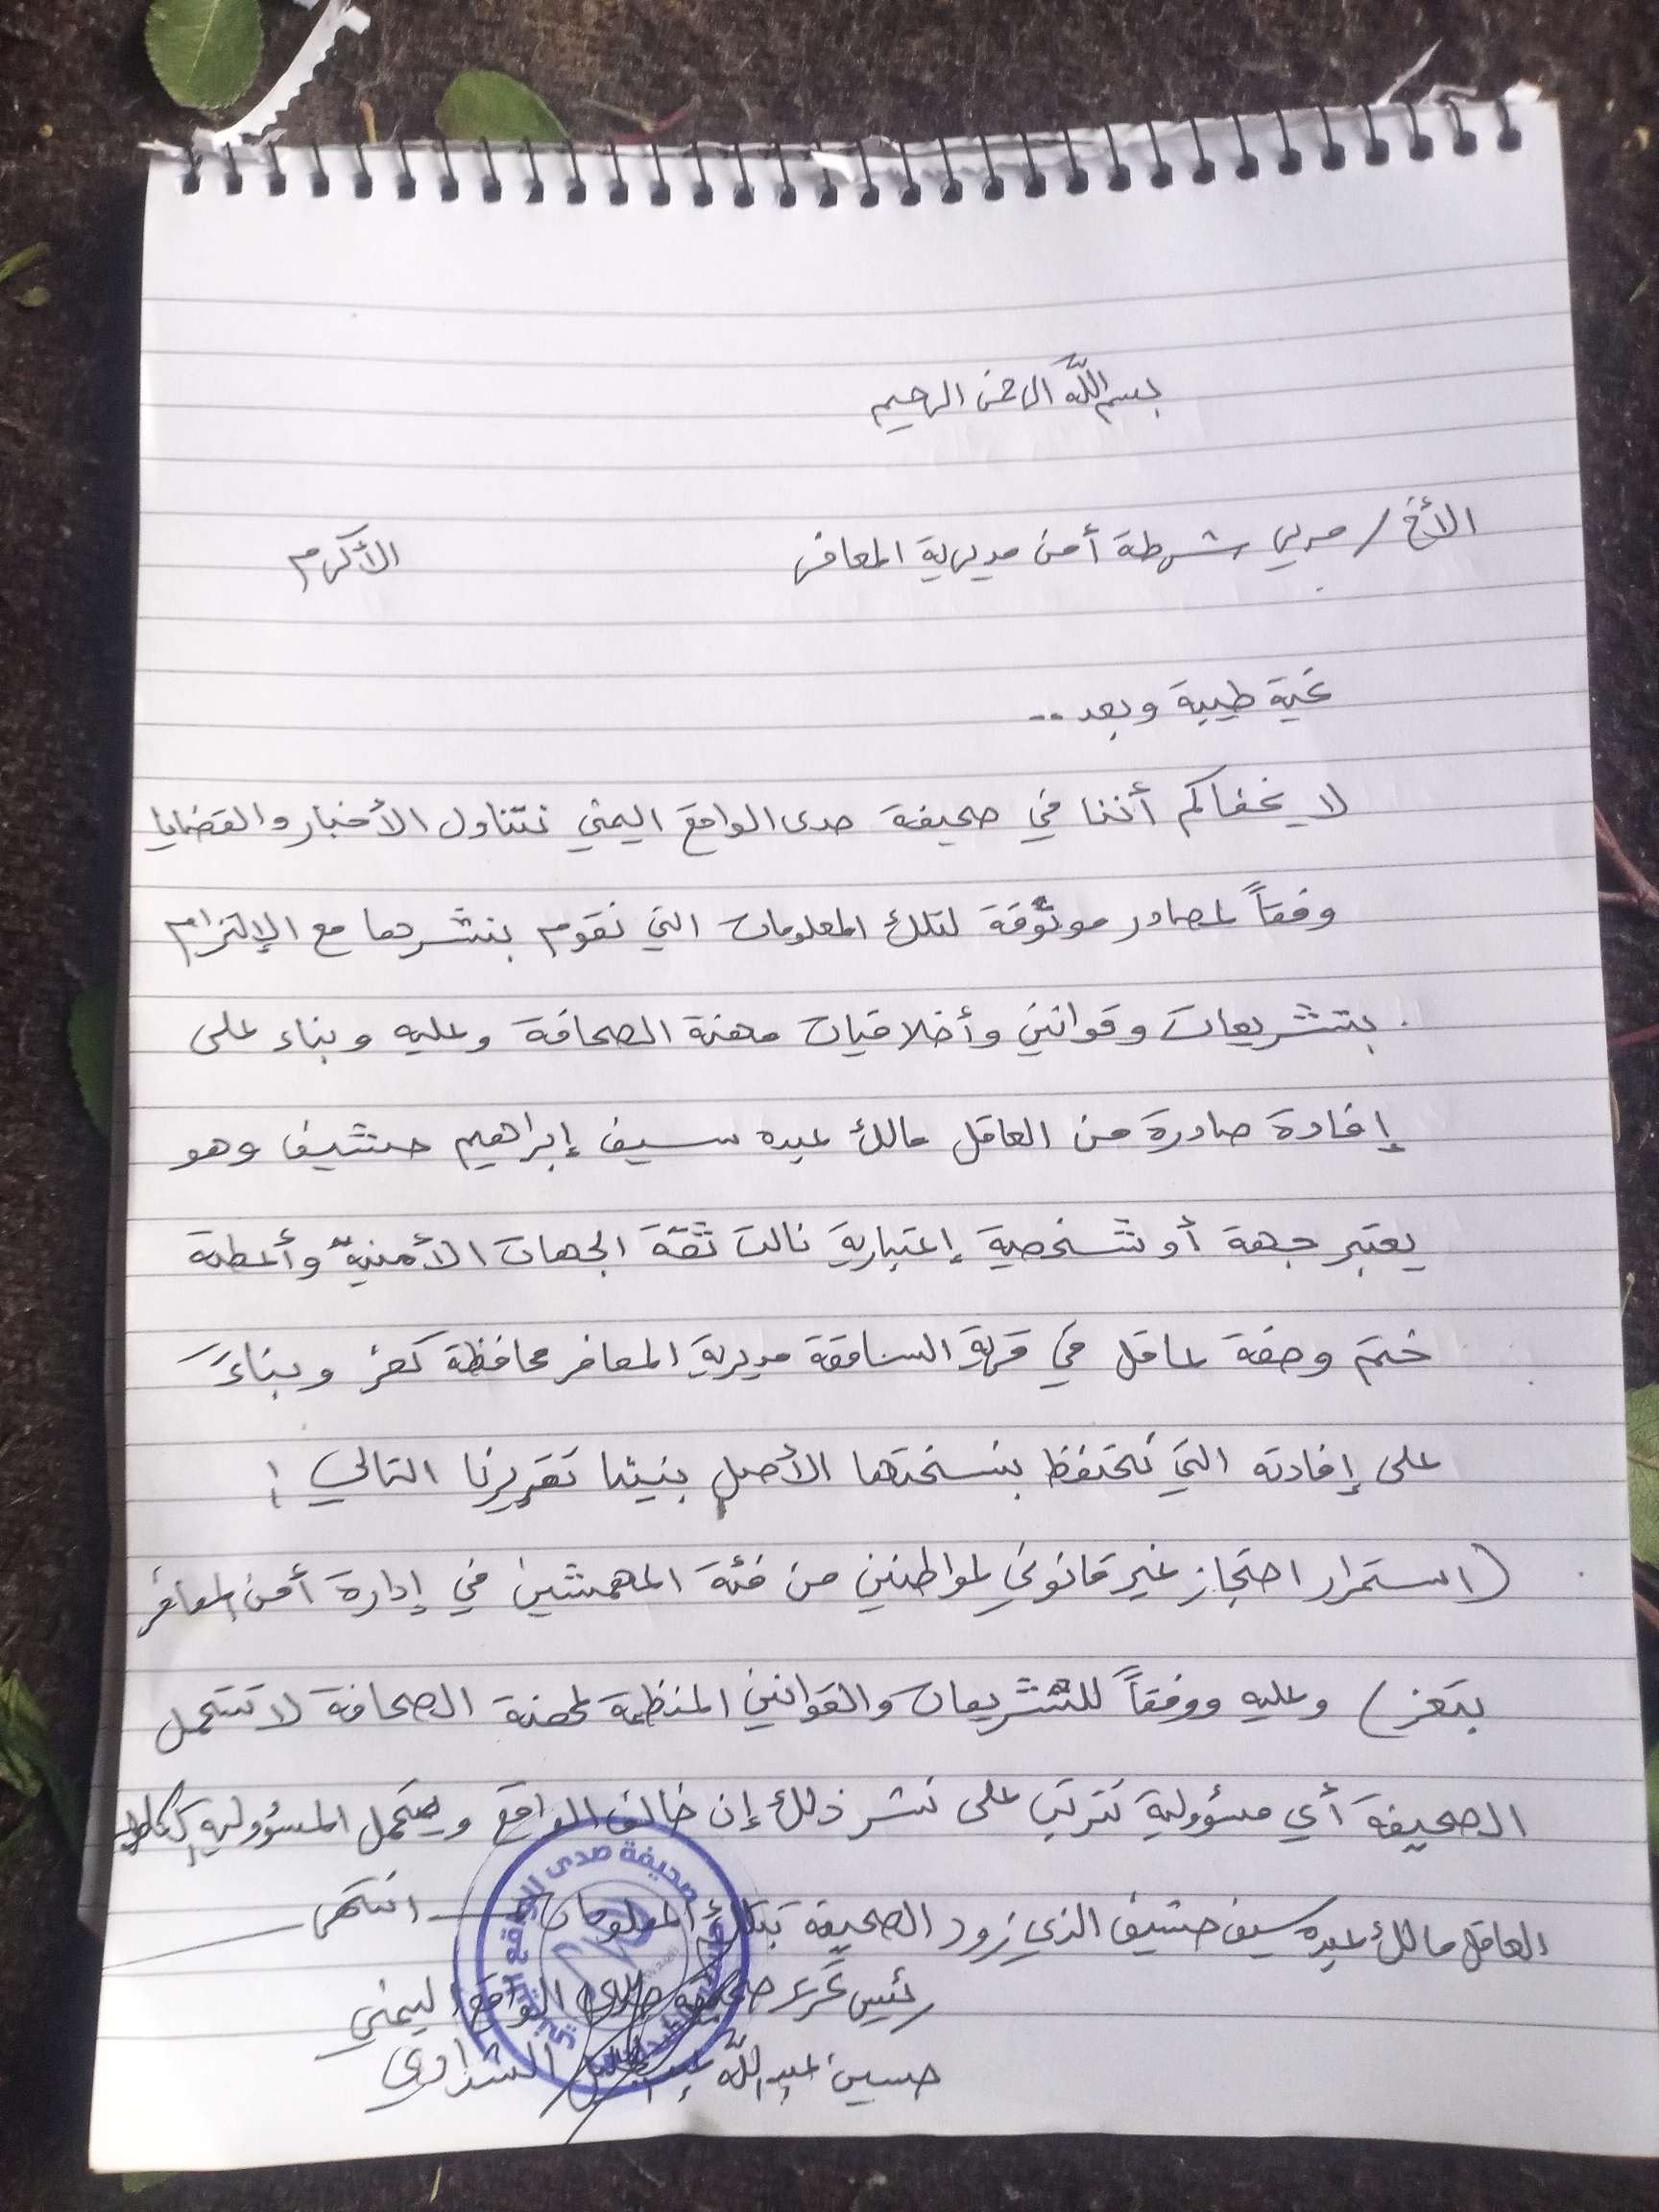 بسم الله الرحمن الرحيم
الأخ / مدير شرطة أمن مديرية المعافر الأكرم
تحية طيبة وبعد --
لا يخفاكم أننا في صحيفة صدى الواقع اليمني نتناول الأخبار والقضايا
وفقاً لمصادر موثوقة لتلك المعلومات التي نقوم بنشرها مع الإلتزام
بتشريعات وقوانين وأخلاقيات مهنة الصحافة وعليه وبناء على
إفادة صادرة من العاقل مالك عبده سيف إبراهيم حشيف وهو
يعتبر جهة أو شخصية إعتبارية نالت ثقة الجهات الأمنية وأعطته
ختم وصفة عاقل في قرية مديرية المعافر محافظة تعز وبناءً
على إفادته التي نحتفظ بنسختها الأصل بنينا تقريرنا التالي :
(استمرار احتجاز غير قانوني لمواطنين من فئة المهمشين في إدارة أمن المعافر
بتعز) وعليه ووفقاً للتشريعات والقوانين المنظمة لمهنة الصحافة لا تتحمل
الصحيفة أي مسؤولية تترتب على نشر ذلك إن خالف الواقع ويتحمل المسؤولية
العاقل مالك عبده سيف حشيف الذي زود الصحيفة بتلك المعلومات انتهى
رئيس تحرير صحيفة صدى الواقع اليمني
حسين عبدالله الشذاوي
صحيفة صدى الواقع اليمني